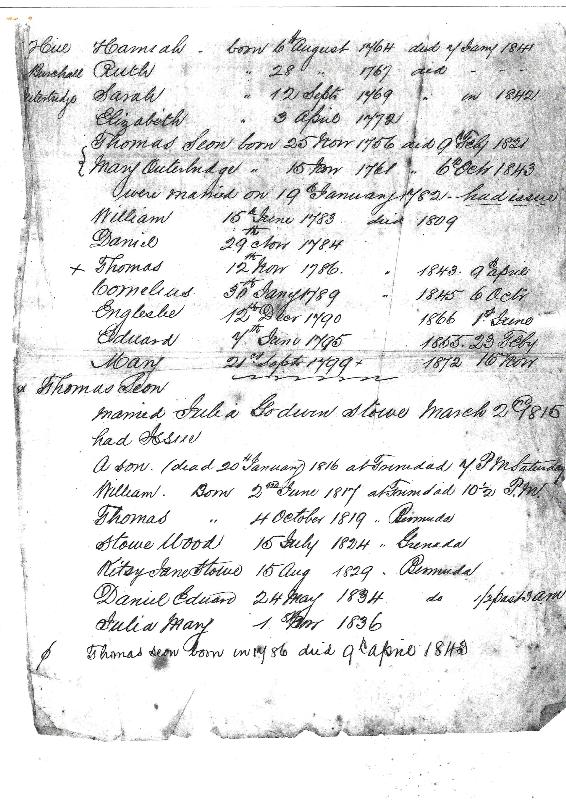 Hive Hannah - born 6th August 1764 died 7 Jany 1841
Burchall Ruth " 28 " 1767 died - - -
Outerbridge Sarah " 12 Septr 1769 " in 1842
Elizabeth " 3 April 1772
Thomas Seon born 25 Nov 1756 died 9 Feby 1821
Mary Outerbridge " 15 Nov 1761 " 6th Octr 1843
were married on 19th January 1782 - had issue
William 15th June 1783 died 1809
Daniel 29th Nov 1784
+ Thomas 12th Nov 1786. " 1843. 9th April
Cornelius 30th Jany 1789 " 1845 6 Octr
Englesbe 12th Decr 1790 1866 1st June
Edward 7th June 1795 1855. 23 Feby
Mary 21st Septr 1799 + 1872 16 Nov
x Thomas Seon
married Julia Godwin Stowe March 2nd 1815
had Issue
A son. (dead 20th January) 1816 at Trinidad 7 P.M. Saturday
William. Born 2nd June 1817 at Trinidad 10½ P.M.
Thomas " 4 October 1819 " Bermuda
Stowe Wood 15 July 1824 " Grenada
Kitsy Jane Stowe 15 Aug 1829 . Bermuda
Daniel Edward 24 May 1834 do ½ past 3 am
Julia Mary 1 Nov 1836
Thomas Seon born in 1786 died 9th April 1843